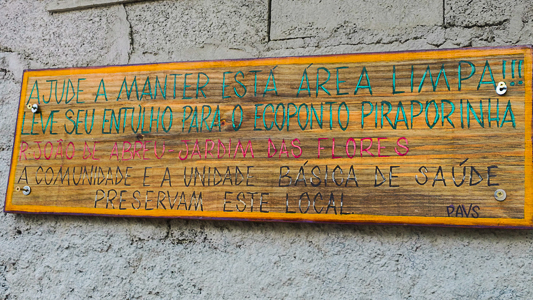 AJUDE A MANTER ESTÁ ÁREA LIMPA!!!
LEVE SEU ENTULHO PARA O ECOPONTO PIRAPORINHA
R JOÃO DE ABREU JARDIM DAS FLORES
A COMUNIDADE E A UNIDADE BÁSICA DE SAÚDE
PRESERVAM ESTE LOCAL.
PAVS